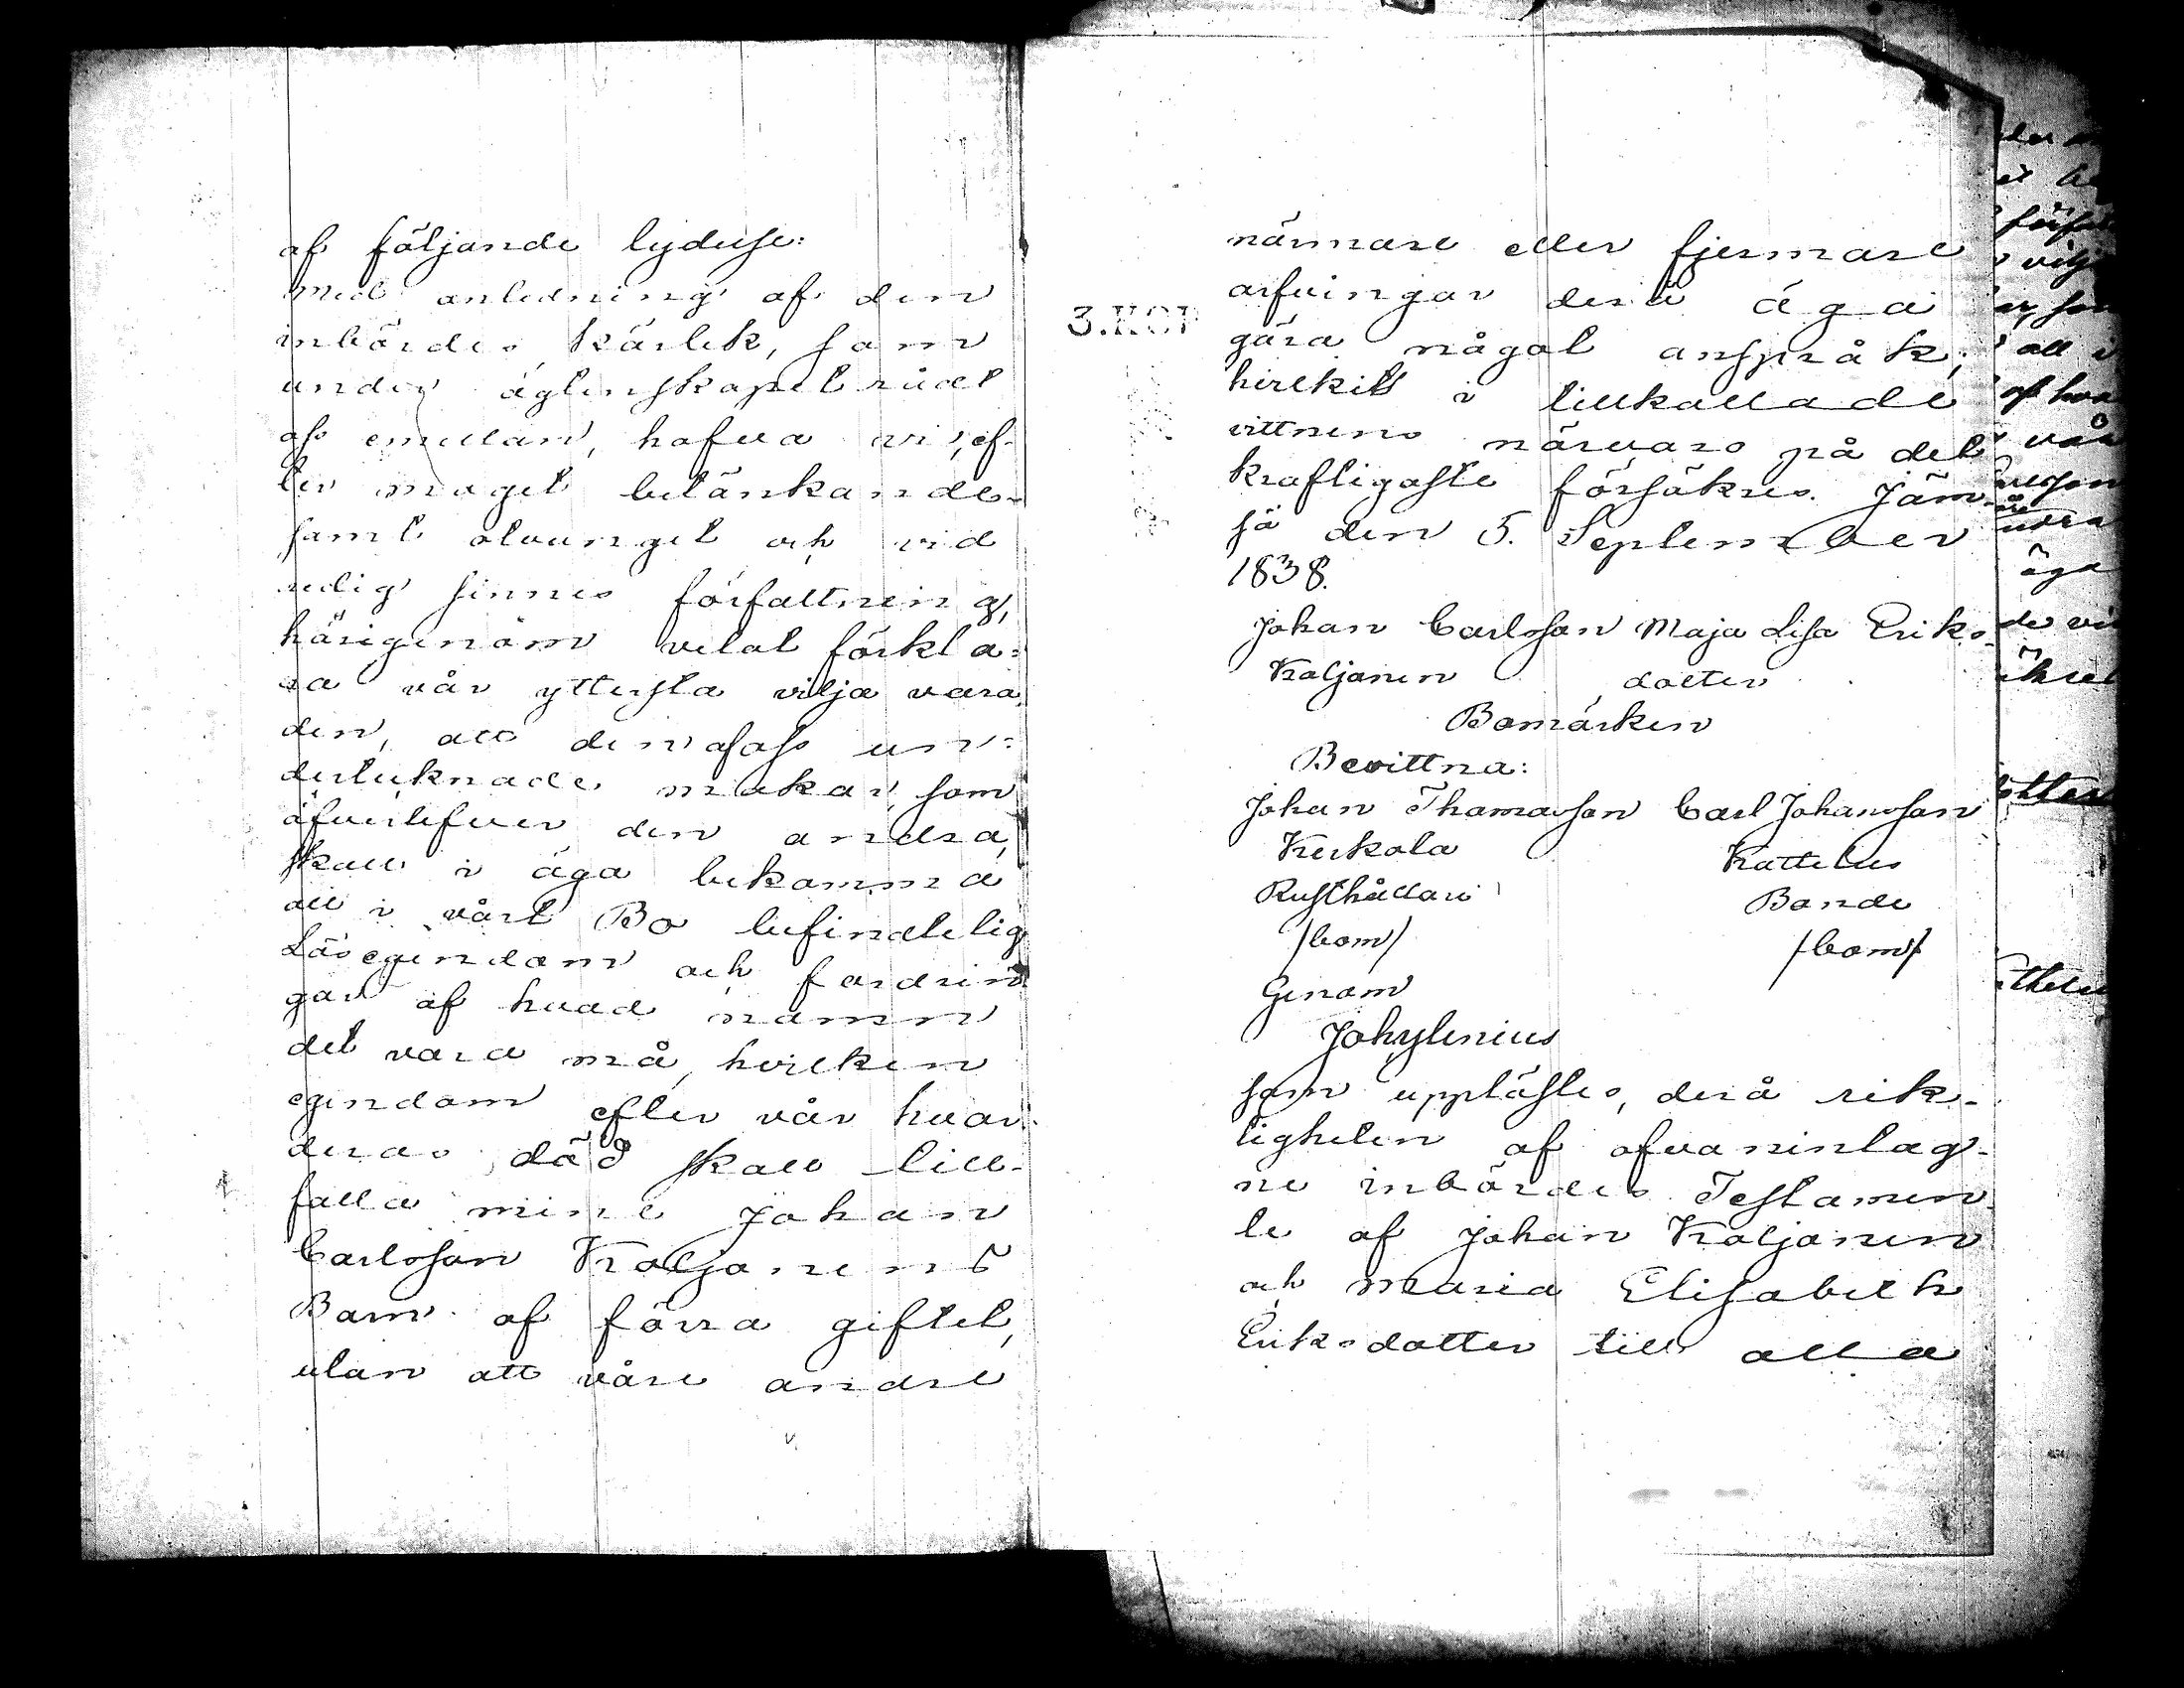 af följande lydelse:
Med anledning af den
inbördes kärlek, som
under ägtenskapet rådt
oss emellan, hafva vi, ef-
ter moget betänkande
samt otvunget och vid
redig sinnes författning,
härigenom velat förkla=
ra vår yttersta vilja vara
den, att den af oss un=
dertecknade makar, som
öfverlefver den andra,
skall i äga bekomma
all i vårt Bo befindtelig
Lösegendom och fordrin
gar af hvad namn
det vara må, hvilken
egendom efter vår hvar-
deras död skall till-
falla mine Johan
Carlsson Koljonens
Barn af förra giftet,
utan att våre andre
närmare eller fjermare
arfvingar derå äga
göra något anspråk;
hvilket i tillkallade
vittnens närvaro på det
kraftigaste försäkres. Jäm-
sä den 5. September
1838.
Johan Carlsson Maja Lisa Eriks-
Koljonen dotter
Bomärken
Bevittna:
Johan Thomasson Carl Johansson
Kerkola Kattelus
Rusthållare Bonde
/bom/ /bom/
Genom
Joh
som upplästes, derå rik-
tigheten af ofvanintag-
ne inbördes Testamen-
te af Johan Koljonen
och Maria Elisabeth
Eriksdotter till alla
3.KOP
vår
äga